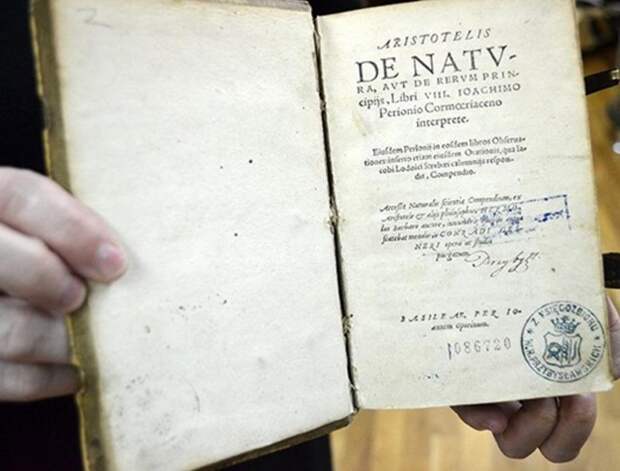 2
ARISTOTELIS
DE NATV-
RA, AVT DE RERVM PRIN-
cipijs, Libri VIII. IOACHIMO
Perionio Cormœriaceno
interprete.
Eiusdem Perionij in eosdem libros Obserua-
tiones: insertæ etiam eiusdem Orationis, qua Ia-
cobi Lodoici Strebæi calumnijs respon-
dit, Compendio.
Accessit Naturalis scientiæ Compendium, ex
Aristotele & alijs philosophis
lao Barbaro autore, innumeris
scatebat mendis CONRADI GES-
NERI opera ac studio
purgatum.
BASILEAE, PER IO-
annem Oporinum.
1086720
Z KSIĘGOZBIORU
HR. PRZYBYSŁAWSKICH